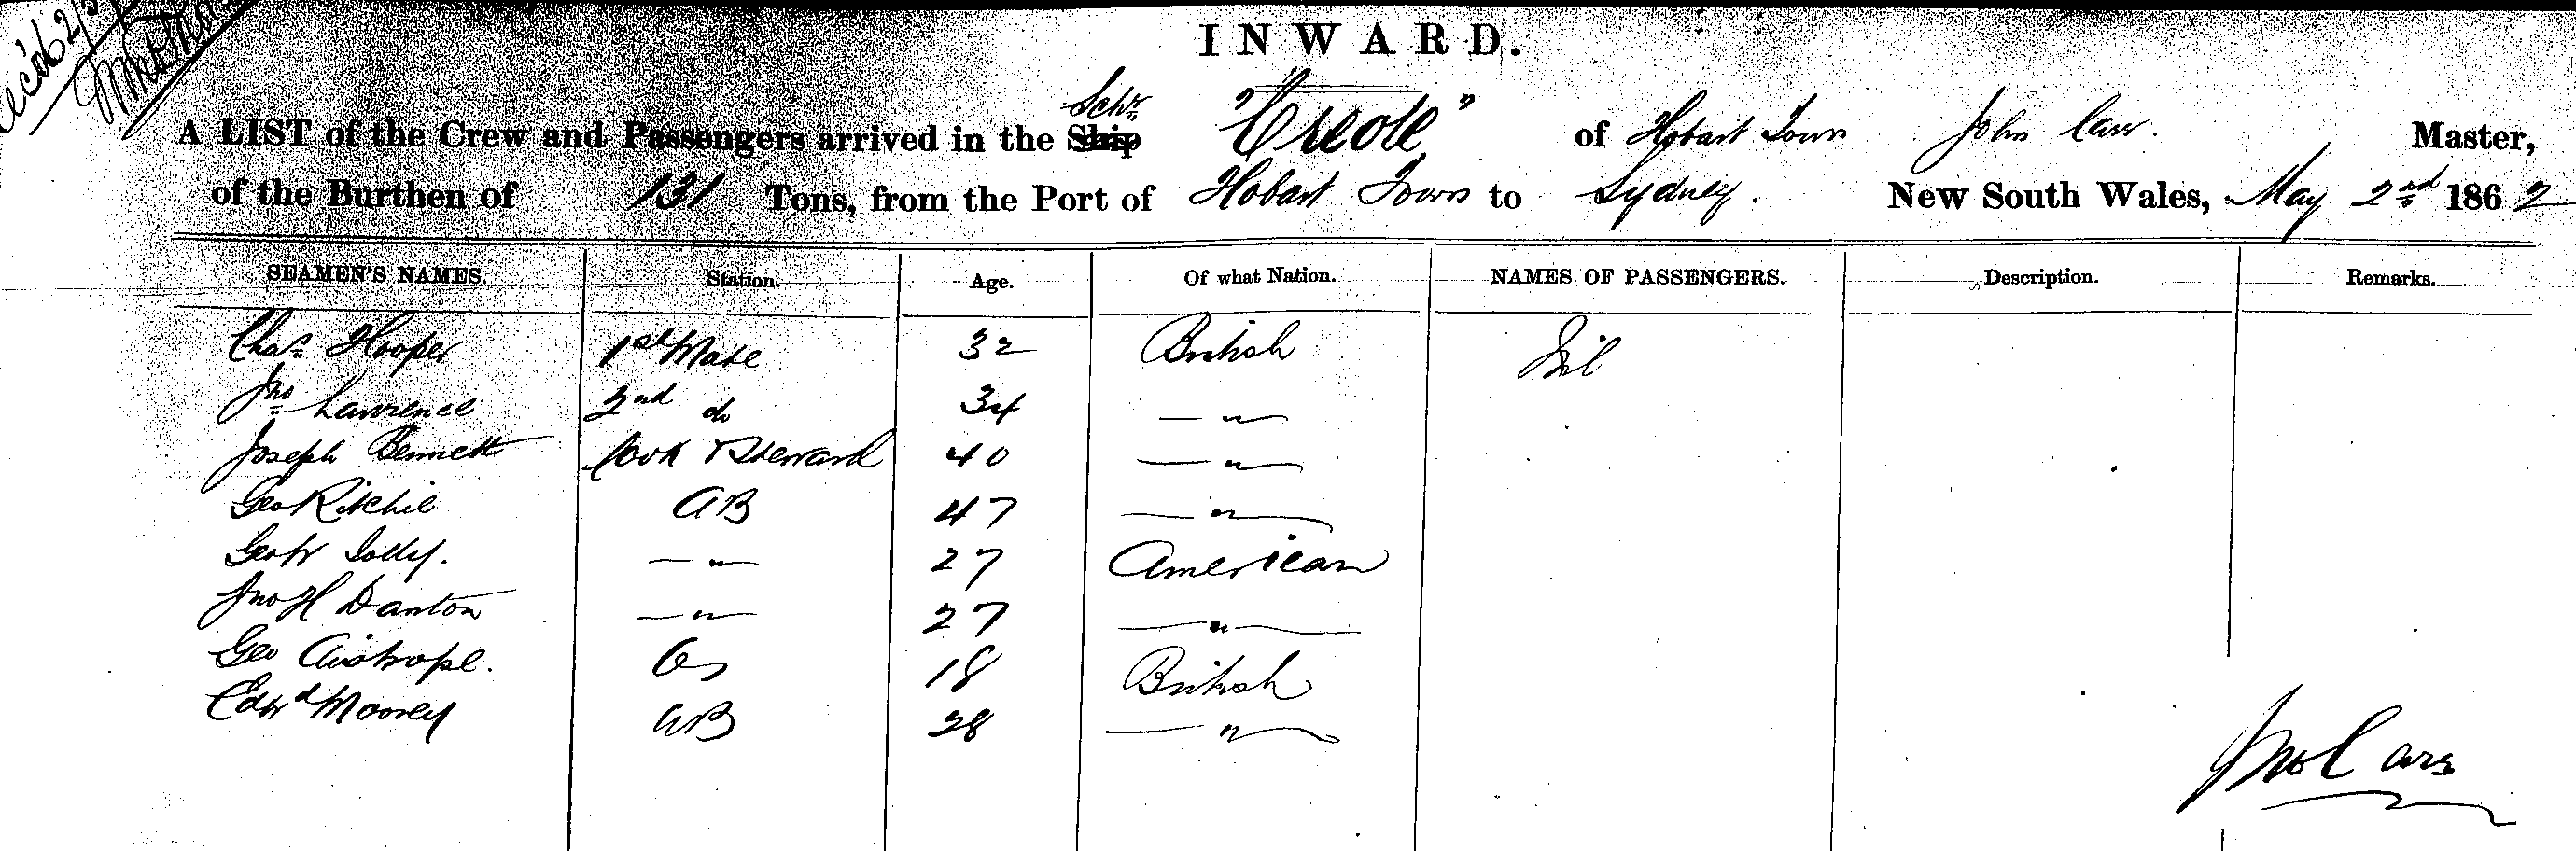 Rec'd 2/5
INWARD.
Schr
A LIST of the Crew and Passengers arrived in the Ship "Creole" of Hobart Town John Carr. Master,
of the Burthen of 131 Tons, from the Port of Hobart Town to Sydney. New South Wales, May 2nd 1862
SEAMEN'S NAMES. Station. Age. Of what Nation. NAMES OF PASSENGERS. Description. Remarks.
Chas. Hooper 1st Mate 32 British Nil
Jno Lawrence 2nd do 34 — " —
Joseph Bennett Cook & Steward 40 — " —
Geo Ritchie AB 47 — " —
Geo W — " — 27 American
Jno H Danton — " — 27 — " —
Geo Aistrope. OS 18 British
Edwd Moorey AB 28 — " —
Jno Carr